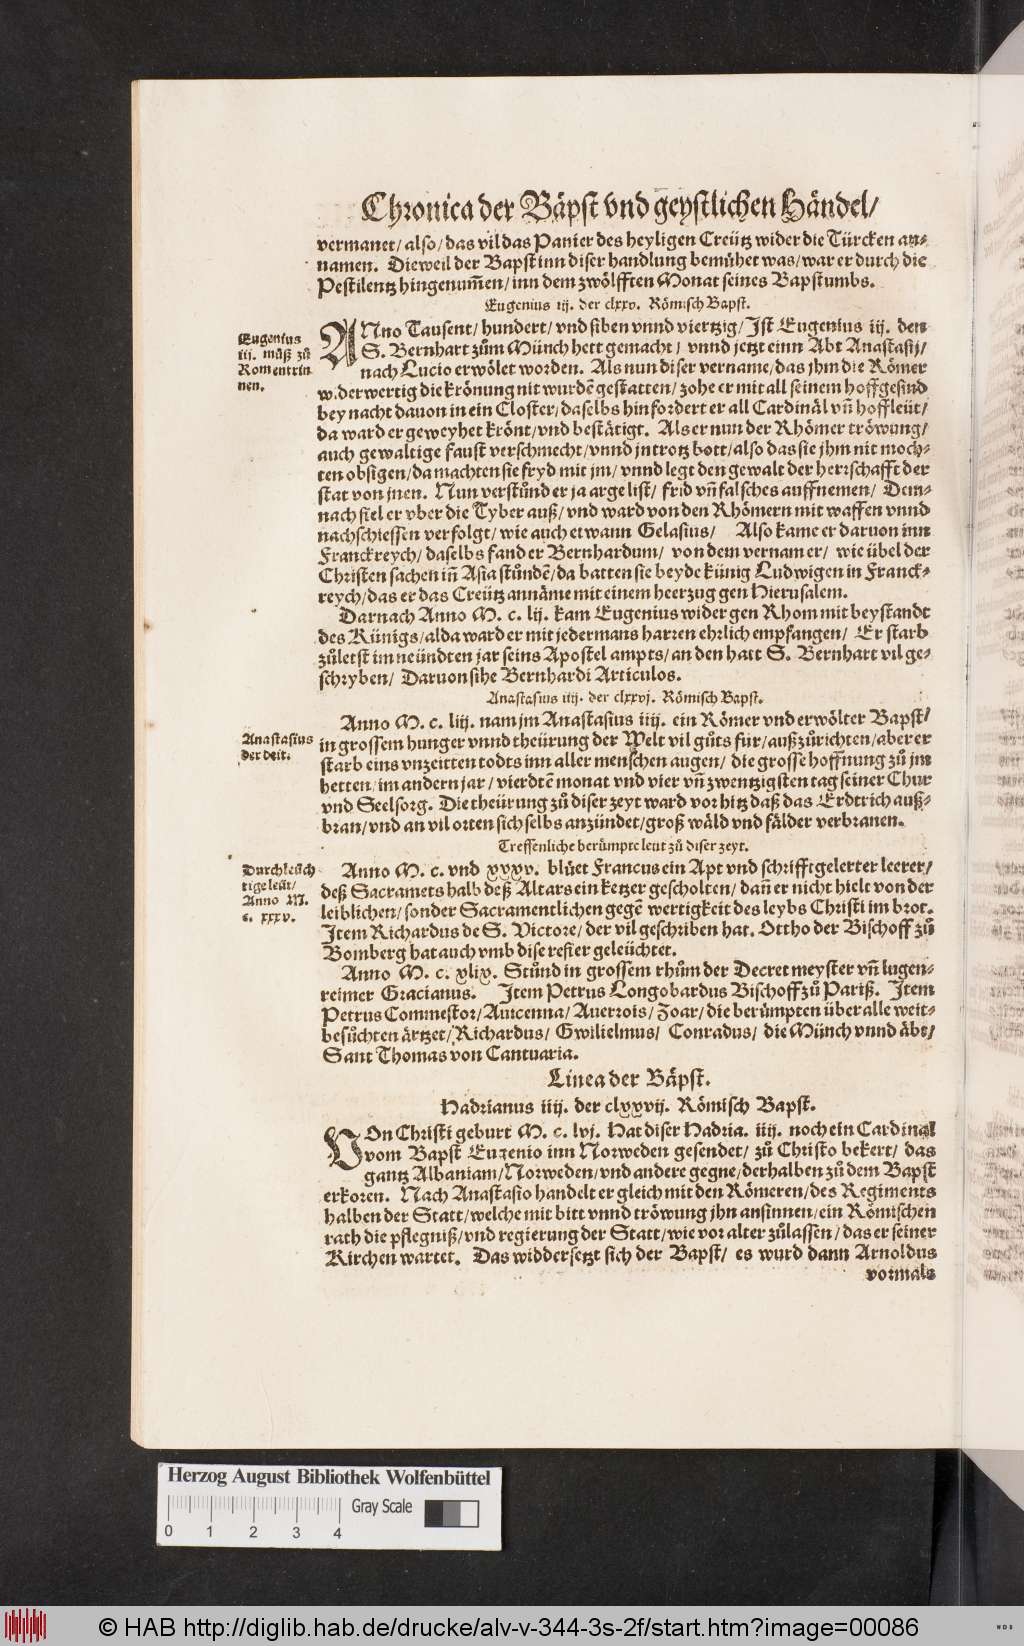 Chronica der Bäpst vnd geystlichen Händel/
vermanet/ also/ das vil das Panier des heyligen Creütz wider die Türcken an-
namen. Dieweil der Bapst inn diser handlung bemühet was/ war er durch die
Pestilentz hingenum̃en/ inn dem zwölfften Monat seines Bapstumbs.
Eugenius iij. der clxxv. Römisch Bapst.
Eugenius
iij. müß zů
Rom entrin
nen.
ANno Tausent/ hundert/ vnd siben vnnd viertzig/ Ist Eugenius iij. den
S. Bernhart zům Münch hett gemacht/ vnnd jetzt einn Abt Anastasij/
nach Lucio erwölet worden. Als nun diser vername/ das jhm die Römer
widerwertig die krönung nit wurdē gestatten/ zohe er mit all seinem hoffgesind
bey nacht dauon in ein Closter/ daselbs hin fordert er all Cardinäl vñ hoffleüt/
da ward er geweyhet krönt/ vnd bestätigt. Als er nun der Rhömer tröwung/
auch gewaltige faust verschmecht/ vnnd jn trotz bott/ also das sie jhm nit moch-
ten obsigen/ da machten sie fryd mit jm/ vnnd legt den gewalt der herrschafft der
stat von jnen. Nun verstůnd er ja arge list/ frid vñ falsches auffnemen/ Dem-
nach fiel er vber die Tyber auß/ vnd ward von den Rhömern mit waffen vnnd
nachschiessen verfolgt/ wie auch etwann Gelasius/ Also kame er daruon inn
Franckreych/ daselbs fand er Bernhardum/ von dem vernam er/ wie übel der
Christen sachen iñ Asia stůndē/ da batten sie beyde künig Ludwigen in Franck-
reych/ das er das Creütz annäme mit einem heerzug gen Hierusalem.
Darnach Anno M. c. lij. kam Eugenius wider gen Rhom mit beystandt
des Künigs/ alda ward er mit jedermans harren ehrlich empfangen/ Er starb
zůletst im neündten jar seins Apostel ampts/ an den hatt S. Bernhart vil ge-
schryben/ Daruon sihe Bernhardi Articulos.
Anastasius iiij. der clxxvj. Römisch Bapst.
Anastasius
der deit.
Anno M. c. liij. nam jm Anastasius iiij. ein Römer vnd erwölter Bapst/
in grossem hunger vnnd theürung der Welt vil gůts für/ auß zůrichten/ aber er
starb eins vnzeitten todts inn aller menschen augen/ die grosse hoffnung zů jm
hetten/ im andern jar/ vierdtē monat vnd vier vñ zwentzigsten tag seiner Chur
vnd Seelsorg. Die theürung zů diser zeyt ward vor hitz daß das Erdtrich auß-
bran/ vnd an vil orten sich selbs anzündet/ groß wäld vnd fälder verbranen.
Treffenliche berümpte leut zů diser zeyt.
Durchleüch
tige leüt/
Anno M.
c. xxxv.
Anno M. c. vnd xxxv. blüet Francus ein Apt vnd schrifftgelerter leerer/
deß Sacramets halb deß Altars ein ketzer gescholten/ dañ er nicht hielt von der
leiblichen/ sonder Sacramentlichen gegē wertigkeit des leybs Christi im brot.
Item Richardus de S. Victore/ der vil geschriben hat. Ottho der Bischoff zů
Bomberg hat auch vmb dise refier geleüchtet.
Anno M. c. xlix. Stůnd in grossem rhům der Decret meyster vñ lugen-
reimer Gracianus. Item Petrus Longobardus Bischoff zů Pariß. Item
Petrus Commestor/ Auicenna/ Auerrois/ Zoar/ die berümpten über alle weit-
besůchten ärtzet/ Richardus/ Gwilielmus/ Conradus/ die Münch vnnd äbt/
Sant Thomas von Cantuaria.
Linea der Bäpst.
Hadrianus iiij. der clxxvij. Römisch Bapst.
VOn Christi geburt M. c. lvj. Hat diser Hadria. iiij. noch ein Cardinal
vom Bapst Eugenio inn Norweden gesendet/ zů Christo bekert/ das
gantz Albaniam/ Norweden/ vnd andere gegne/ derhalben zů dem Bapst
erkoren. Nach Anastasio handelt er gleich mit den Römeren/ des Regiments
halben der Statt/ welche mit bitt vnnd tröwung jhn ansinnen/ ein Römischen
rath die pflegniß/ vnd regierung der Statt/ wie vor alter zůlassen/ das er seiner
Kirchen wartet. Das widdersetzt sich der Bapst/ es wurd dann Arnoldus
vormals
Herzog August Bibliothek Wolfenbüttel
Gray Scale
0 1 2 3 4
© HAB http://diglib.hab.de/drucke/alv-v-344-3s-2f/start.htm?image=00086